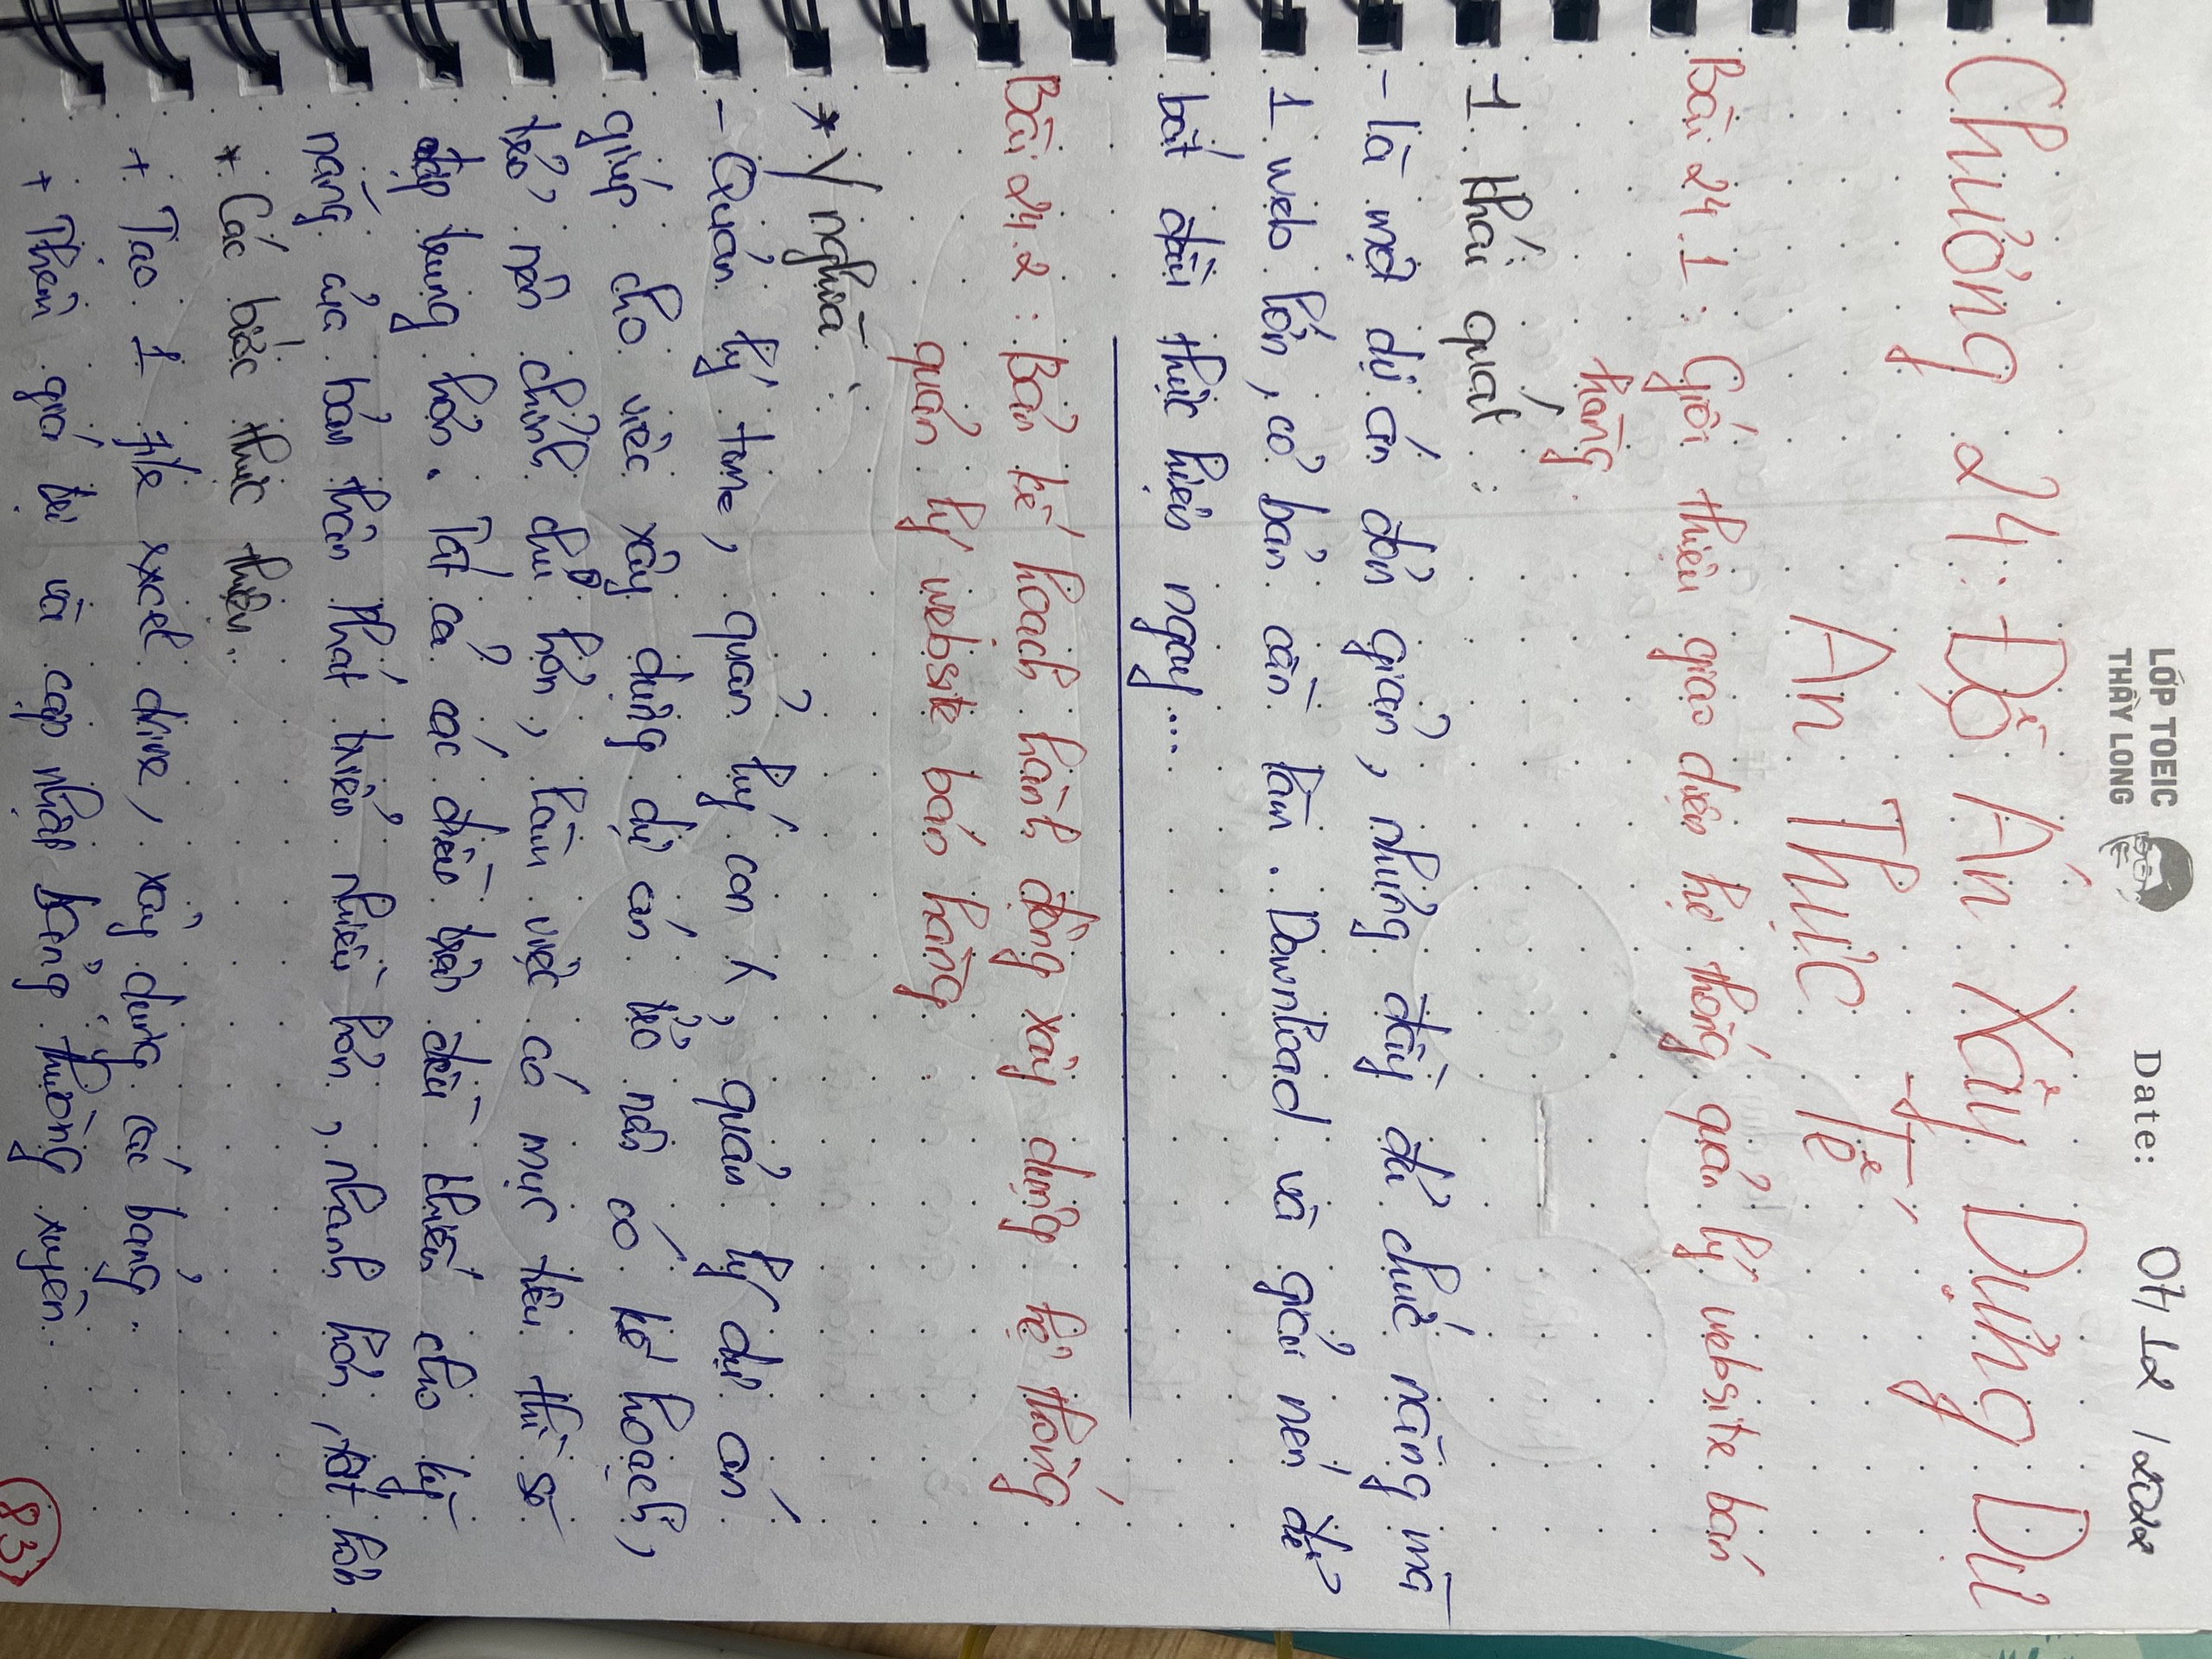 LỚP TOEIC
THẦY LONG
Date: 07/12/2022
Chương 24: Đồ Án Xây Dựng Dự
Án Thực Tế
Bài 24.1: Giới thiệu giao diện hệ thống quản lý website bán
hàng.
1. Khái quát:
- là một dự án đơn giản, nhưng đầy đủ chức năng mà
1 web lớn, cơ bản cần làm. Download và giải nén để
bắt đầu thực hiện ngay...
Bài 24.2: Bản kế hoạch hành động xây dựng hệ thống
quản lý website bán hàng.
* Ý nghĩa:
- Quản lý time, quản lý con, quản lý dự án
giúp cho việc xây dựng dự án trở nên có kế hoạch,
trở nên chỉnh chu hơn, làm việc có mục tiêu thì sẽ
tập trung hơn. Tất cả các điều trên đều khiến cho kỹ
năng của bản thân phát triển nhiều hơn, nhanh hơn, tốt hơn.
* Các bước thực thiện.
+ Tạo 1 file excel drive, xây dựng các bảng.
+ Thêm giá trị và cập nhật bảng thường xuyên.
83